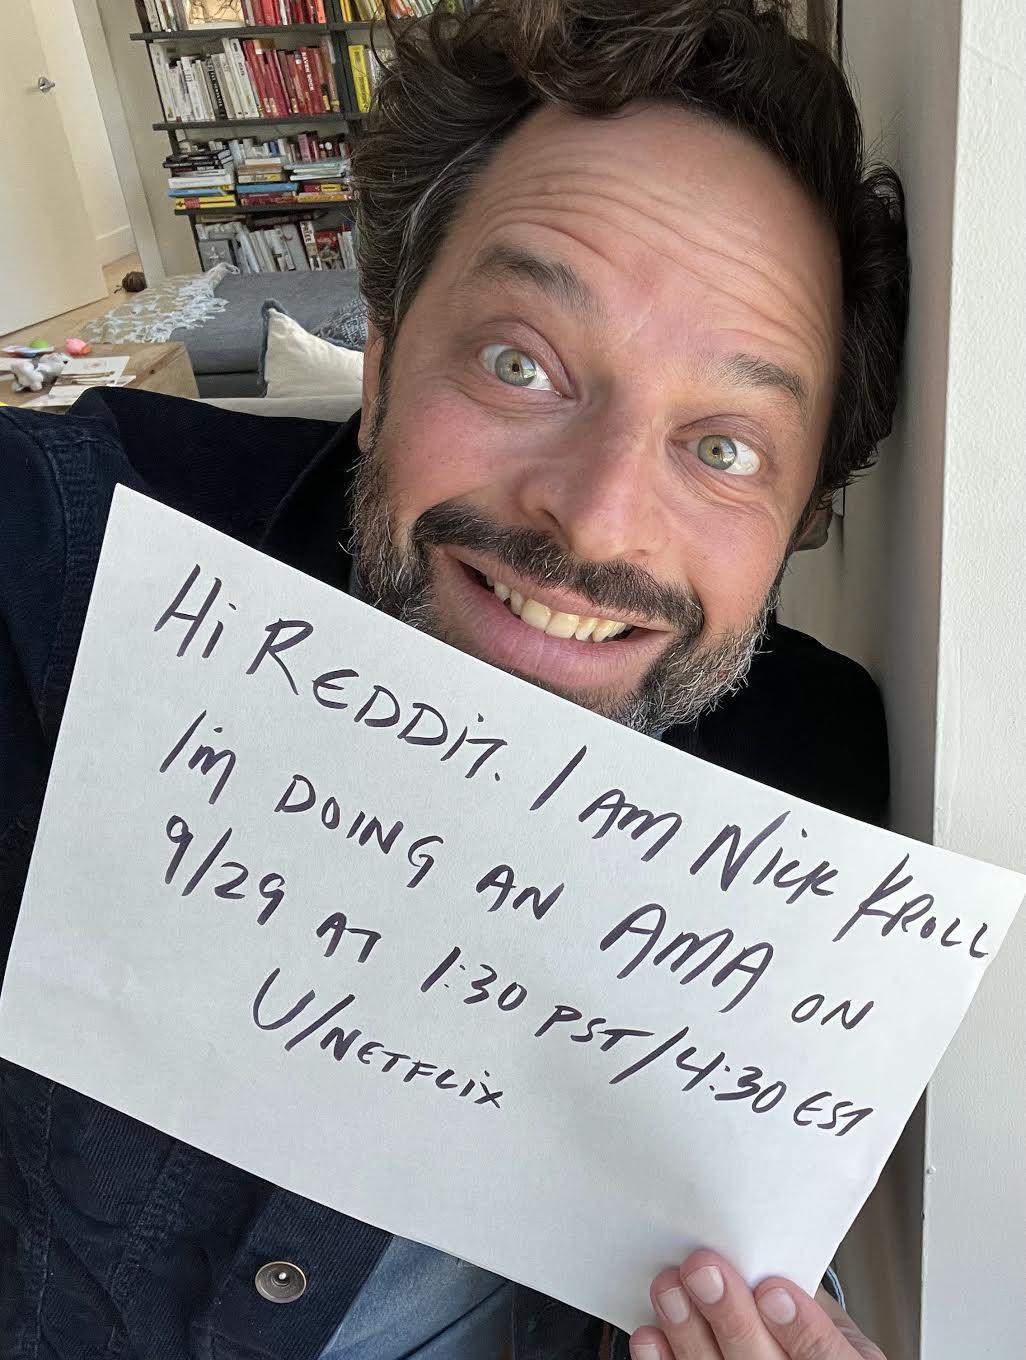 Hi REDDiT. I AM Nick KROLL
I'm DOING AN AMA ON
9/29 AT 1:30 PST/4:30 EST
U/NETFLiX